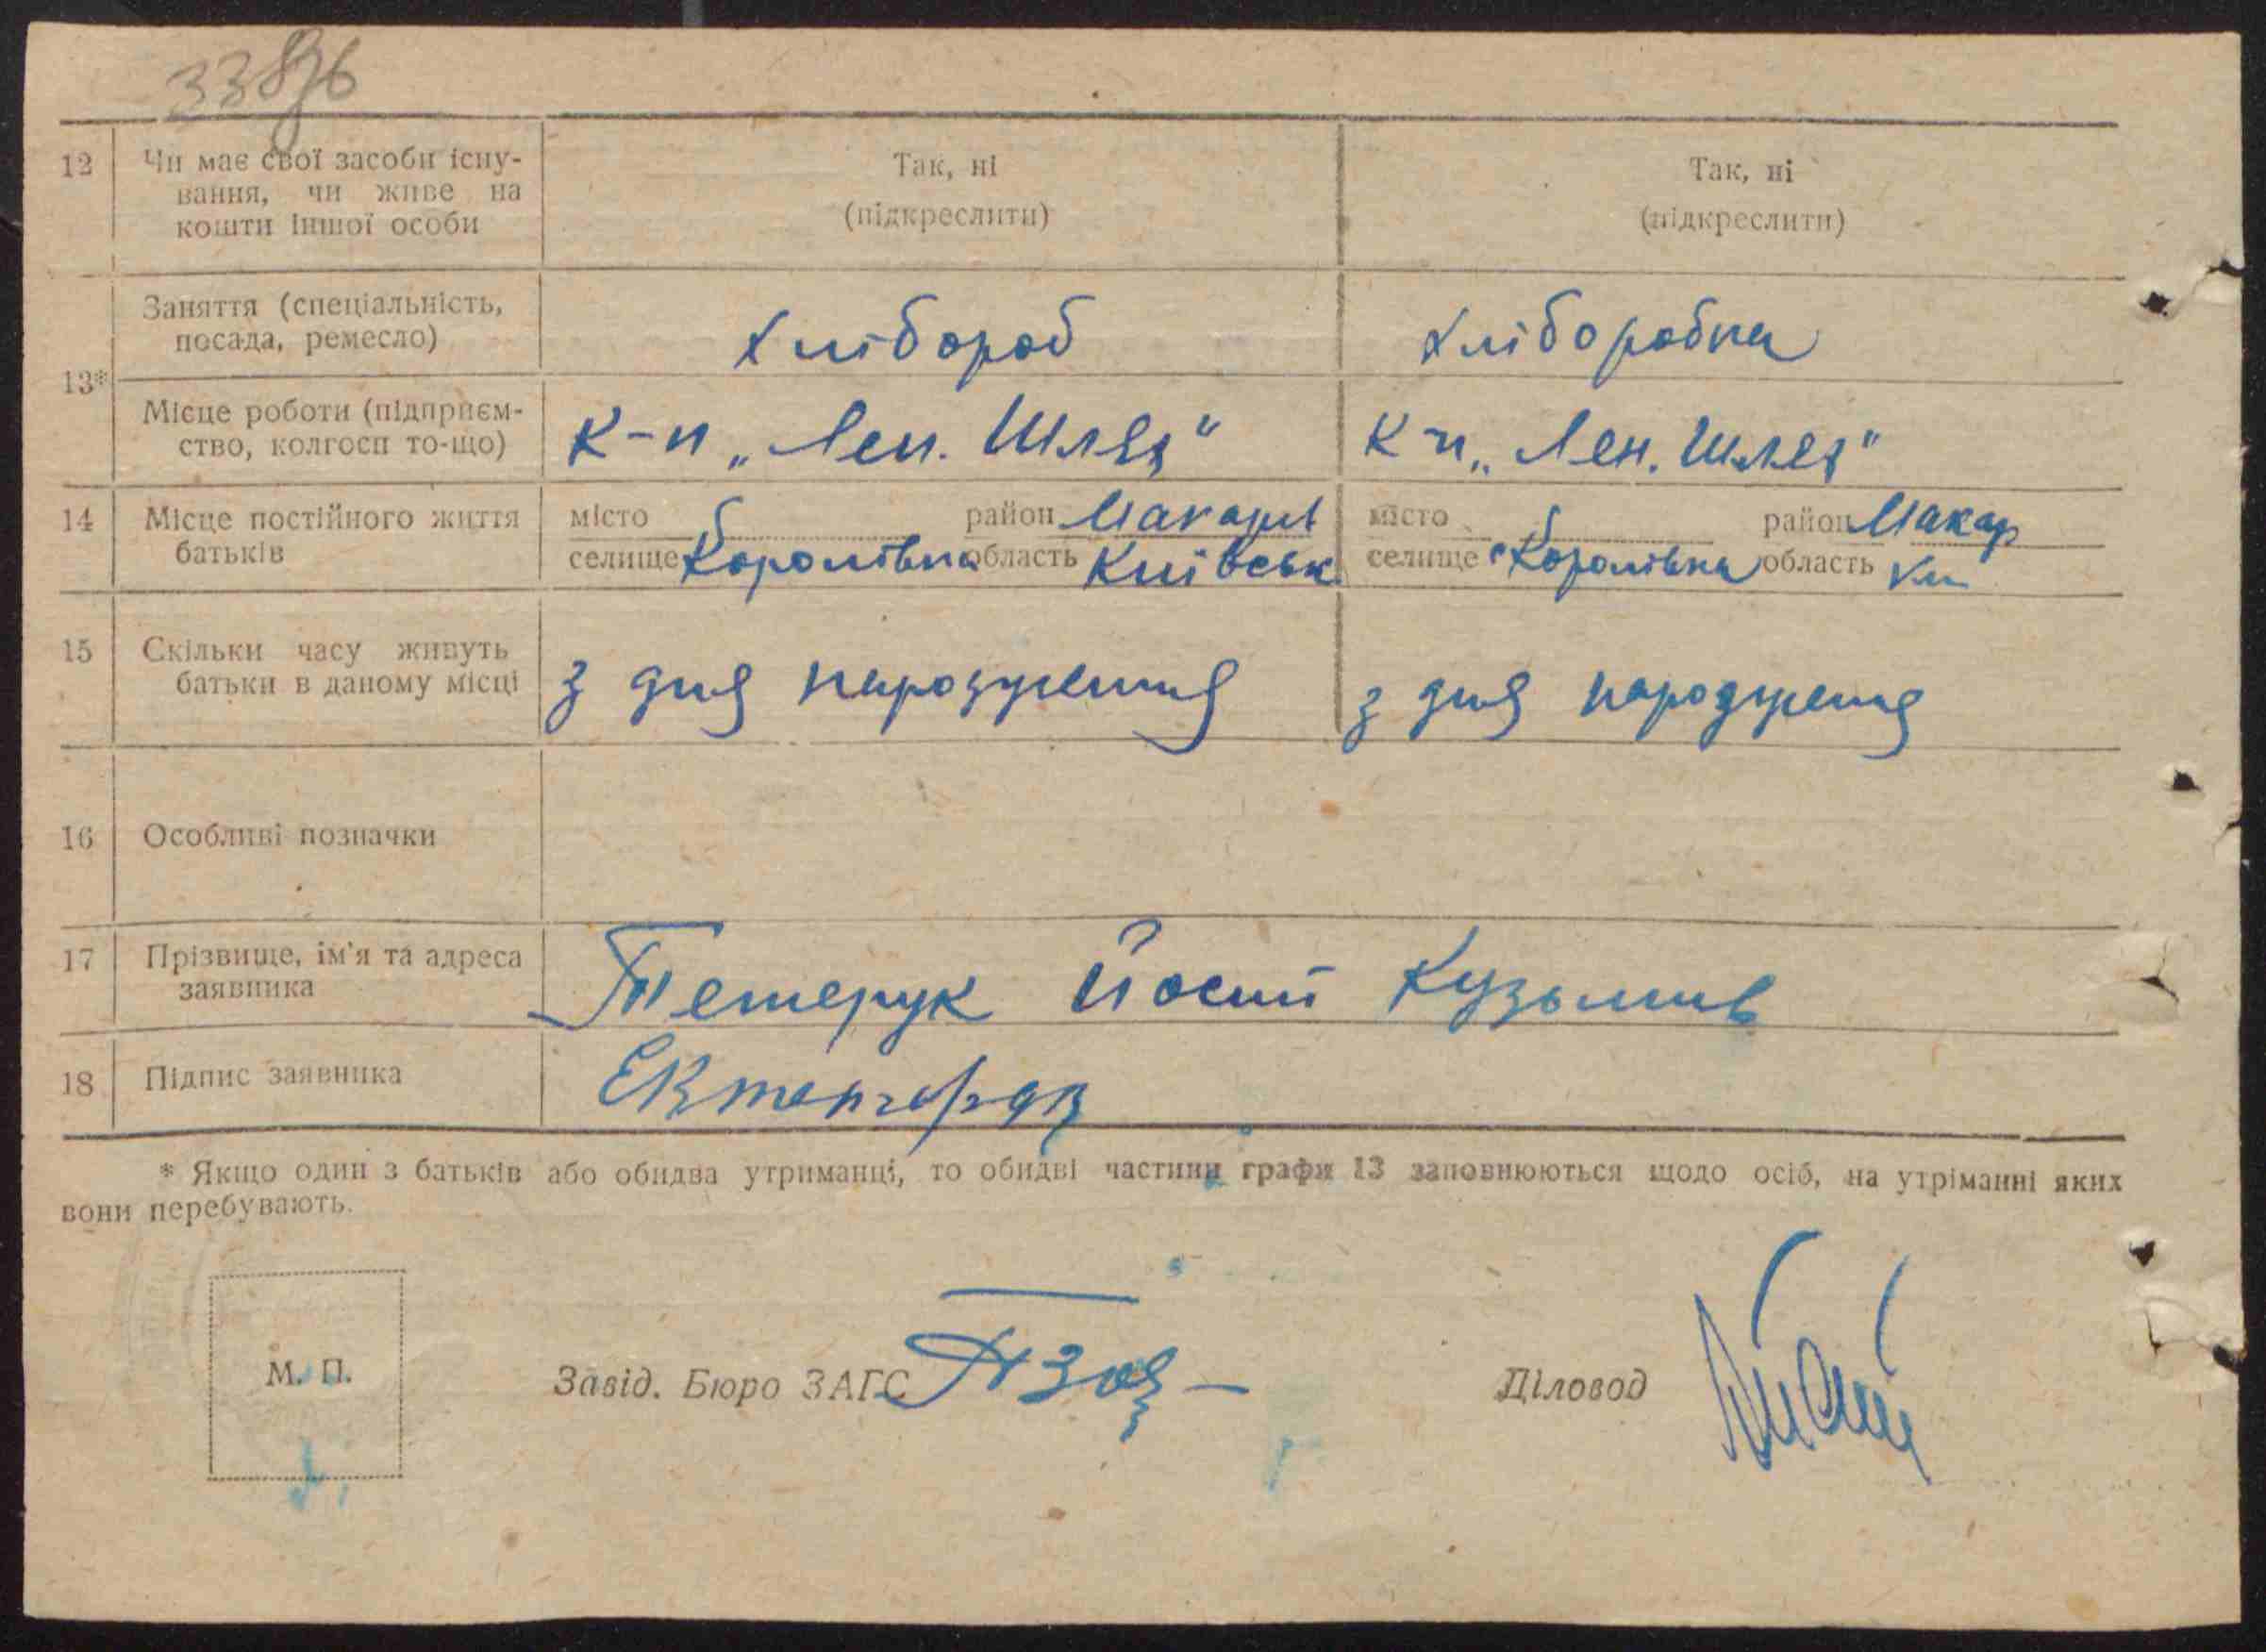 12 Чи має свої засоби існу-
вання, чи живе на
кошти іншої особи
Так, ні
(підкреслити)
Так, ні
(підкреслити)
13*
Заняття (спеціальність,
посада, ремесло)
хлібороб
хліборобка
Місце роботи (підприєм-
ство, колгосп то-що)
к-п „Лен. Шлях"
к-п „Лен. Шлях"
14 Місце постійного життя
батьків
місто район Макарів
селище Королівка область Київськ
місто район Макар
селище Королівка область Ки
15 Скільки часу живуть
батьки в даному місці
з дня народження
з дня народження
16 Особливі позначки
17 Прізвище, ім'я та адреса
заявника
Тетерук Йосип Кузьмив
18 Підпис заявника
* Якщо один з батьків або обидва утриманці, то обидві частини графи 13 заповнюються щодо осіб, на утріманні яких
вони перебувають.
М. П.
Завід. Бюро ЗАГС
Діловод